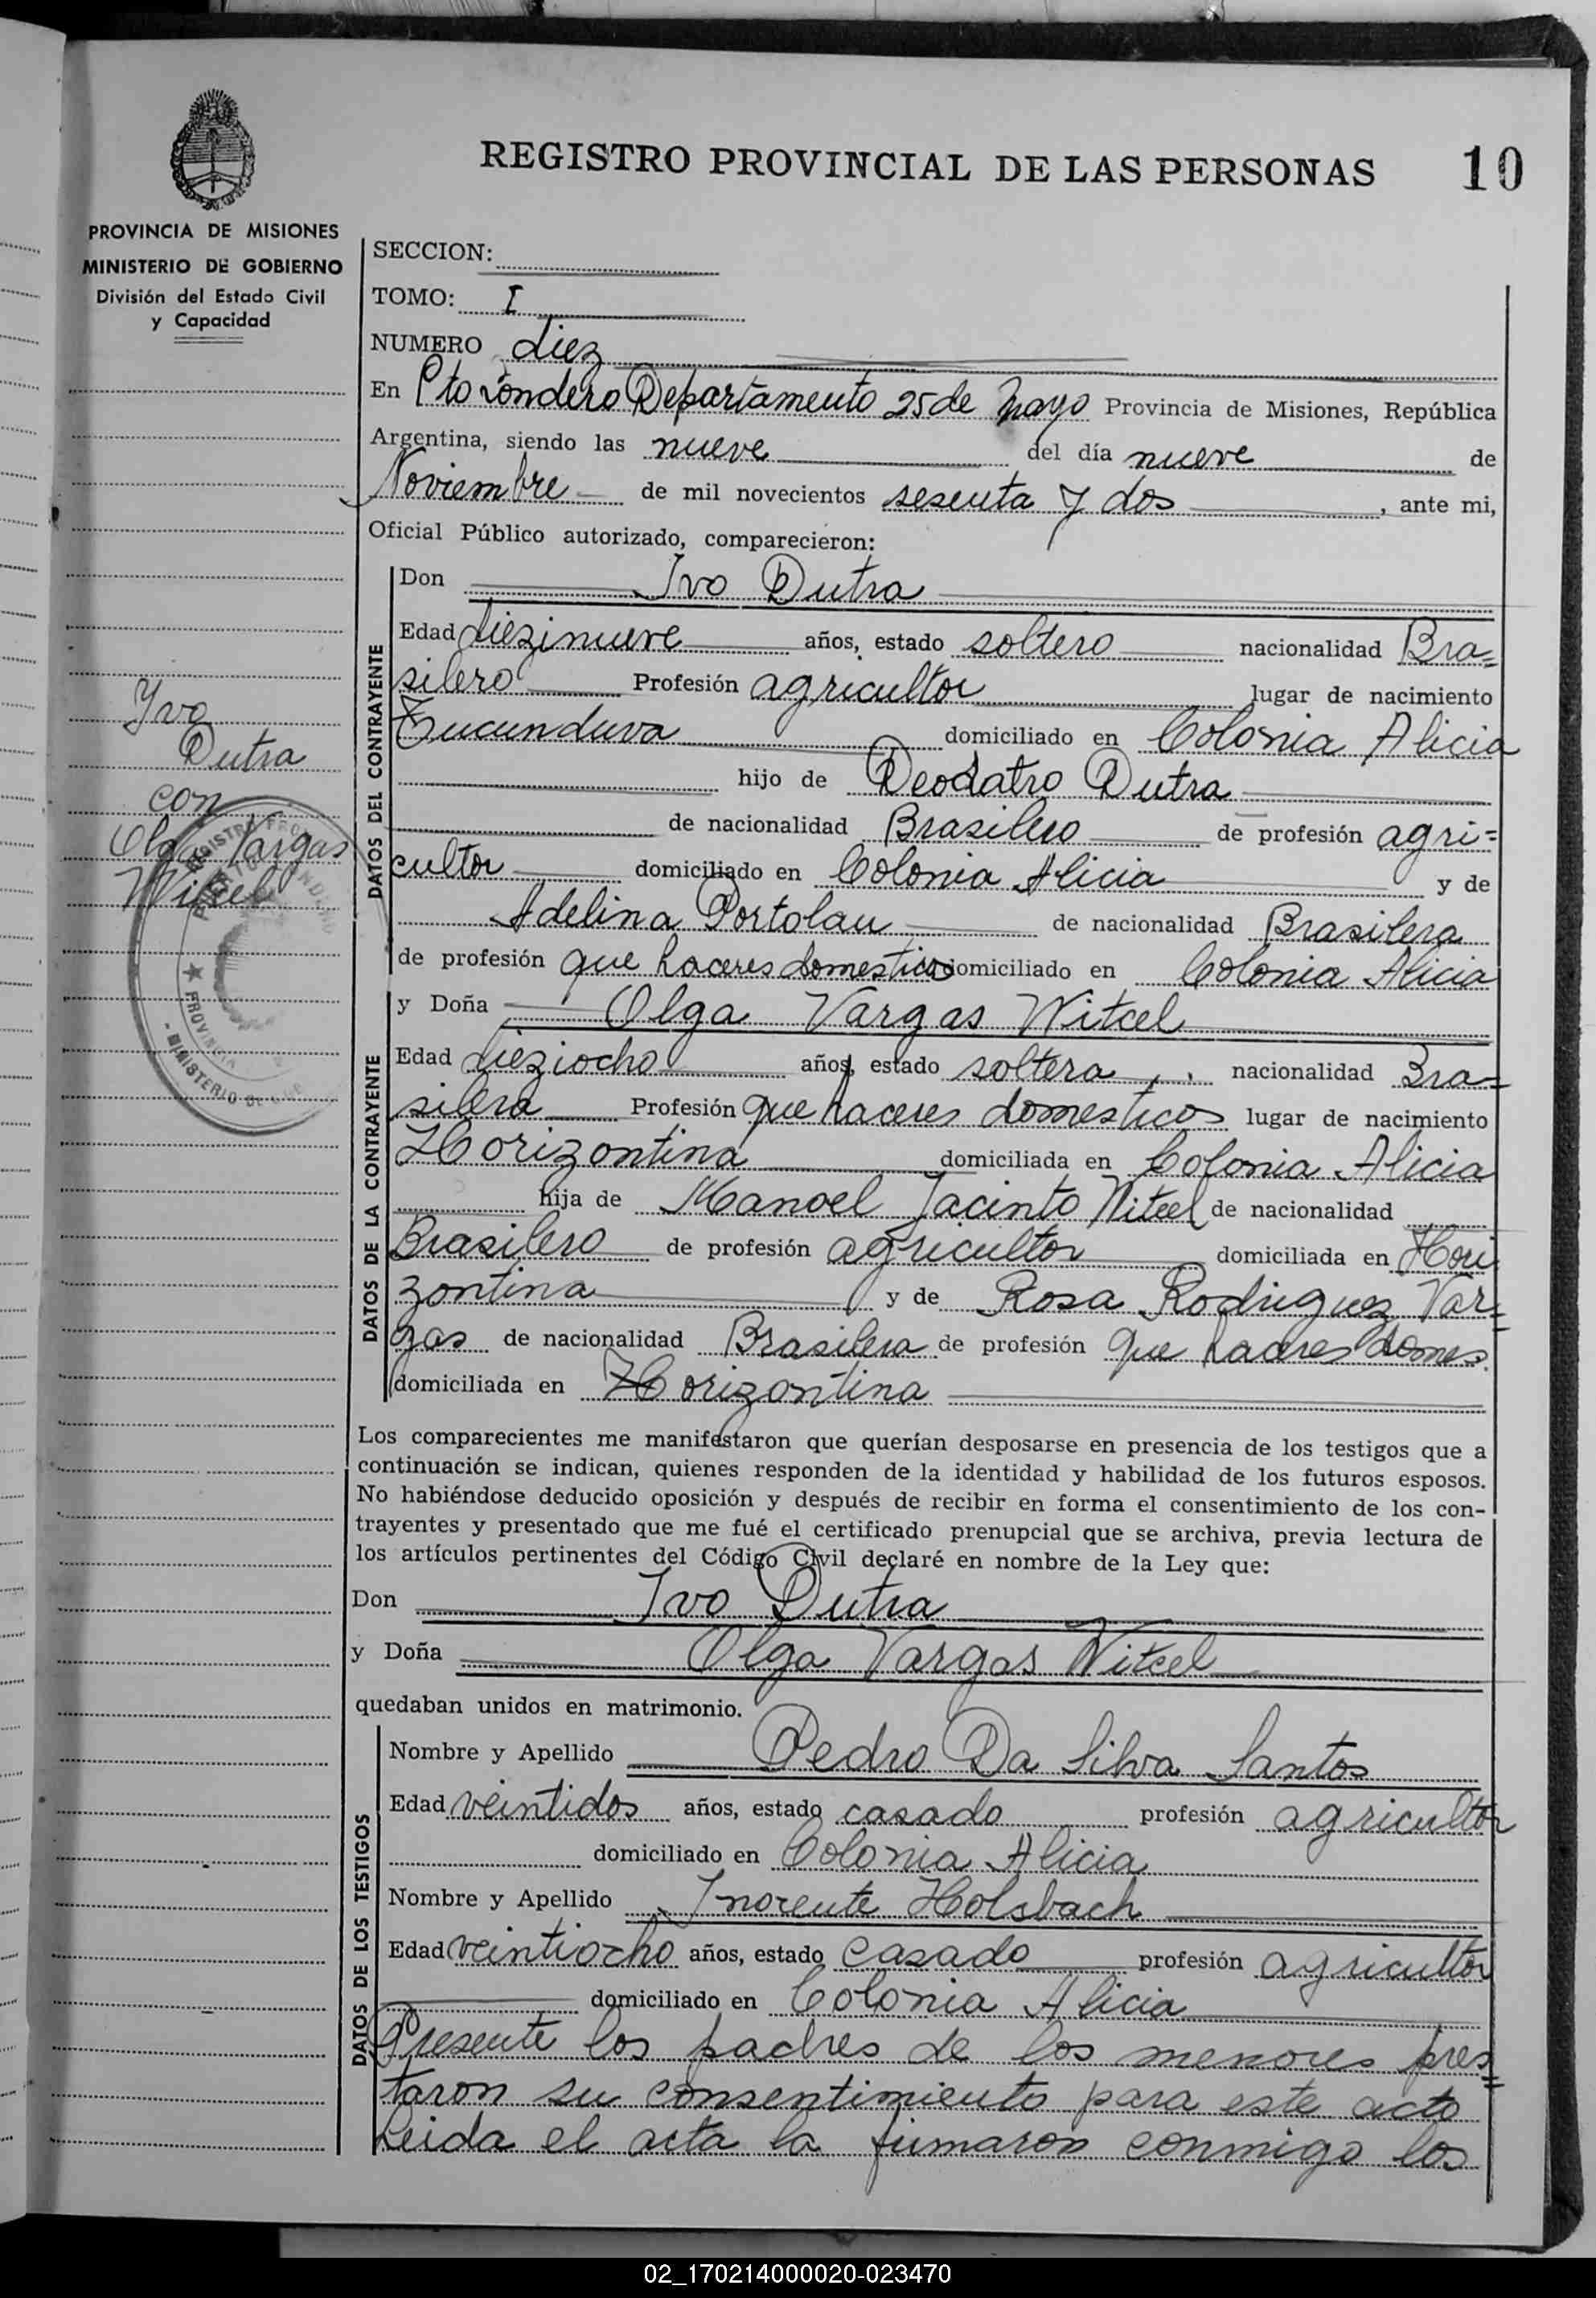 REGISTRO PROVINCIAL DE LAS PERSONAS 10
PROVINCIA DE MISIONES
MINISTERIO DE GOBIERNO
División del Estado Civil
y Capacidad
SECCION:
TOMO: I
NUMERO diez
En Pto Londero Departamento 25 de Mayo Provincia de Misiones, República
Argentina, siendo las nueve del día nueve de
Noviembre de mil novecientos sesenta y dos, ante mi,
Oficial Público autorizado, comparecieron:
DATOS DEL CONTRAYENTE
Don Ivo Dutra
Edad diezinueve años, estado soltero nacionalidad Bra=
silero Profesión agricultor lugar de nacimiento
Tucunduva domiciliado en Colonia Alicia
hijo de Deodatro Dutra
de nacionalidad Brasilero de profesión agri=
cultor domiciliado en Colonia Alicia y de
Adelina Portolau de nacionalidad Brasilera
de profesión que haceres domesticos domiciliado en Colonia Alicia
Yvo
Dutra
con
Olga Vargas
Witcel
DATOS DE LA CONTRAYENTE
y Doña Olga Vargas Witcel
Edad dieziocho años, estado soltera nacionalidad Bra=
silera Profesión que haceres domesticos lugar de nacimiento
Horizontina domiciliada en Colonia Alicia
hija de Manoel Jacinto Witcel de nacionalidad
Brasilero de profesión agricultor domiciliada en Hori
zontina y de Rosa Rodriguez Var=
gas de nacionalidad Brasilera de profesión que haceres domes.
domiciliada en Horizontina
Los comparecientes me manifestaron que querían desposarse en presencia de los testigos que a
continuación se indican, quienes responden de la identidad y habilidad de los futuros esposos.
No habiéndose deducido oposición y después de recibir en forma el consentimiento de los con-
trayentes y presentado que me fué el certificado prenupcial que se archiva, previa lectura de
los artículos pertinentes del Código Civil declaré en nombre de la Ley que:
Don Ivo Dutra
y Doña Olga Vargas Witcel
quedaban unidos en matrimonio.
DATOS DE LOS TESTIGOS
Nombre y Apellido Pedro Da Silva Santos
Edad veintidos años, estado casado profesión agricultor
domiciliado en Colonia Alicia
Nombre y Apellido Inocente Holsbach
Edad veintiocho años, estado casado profesión agricultor
domiciliado en Colonia Alicia
Presente los padres de los menores pres=
taron su consentimiento para este acto
Leida el acta la firmaron conmigo los
02_170214000020-023470